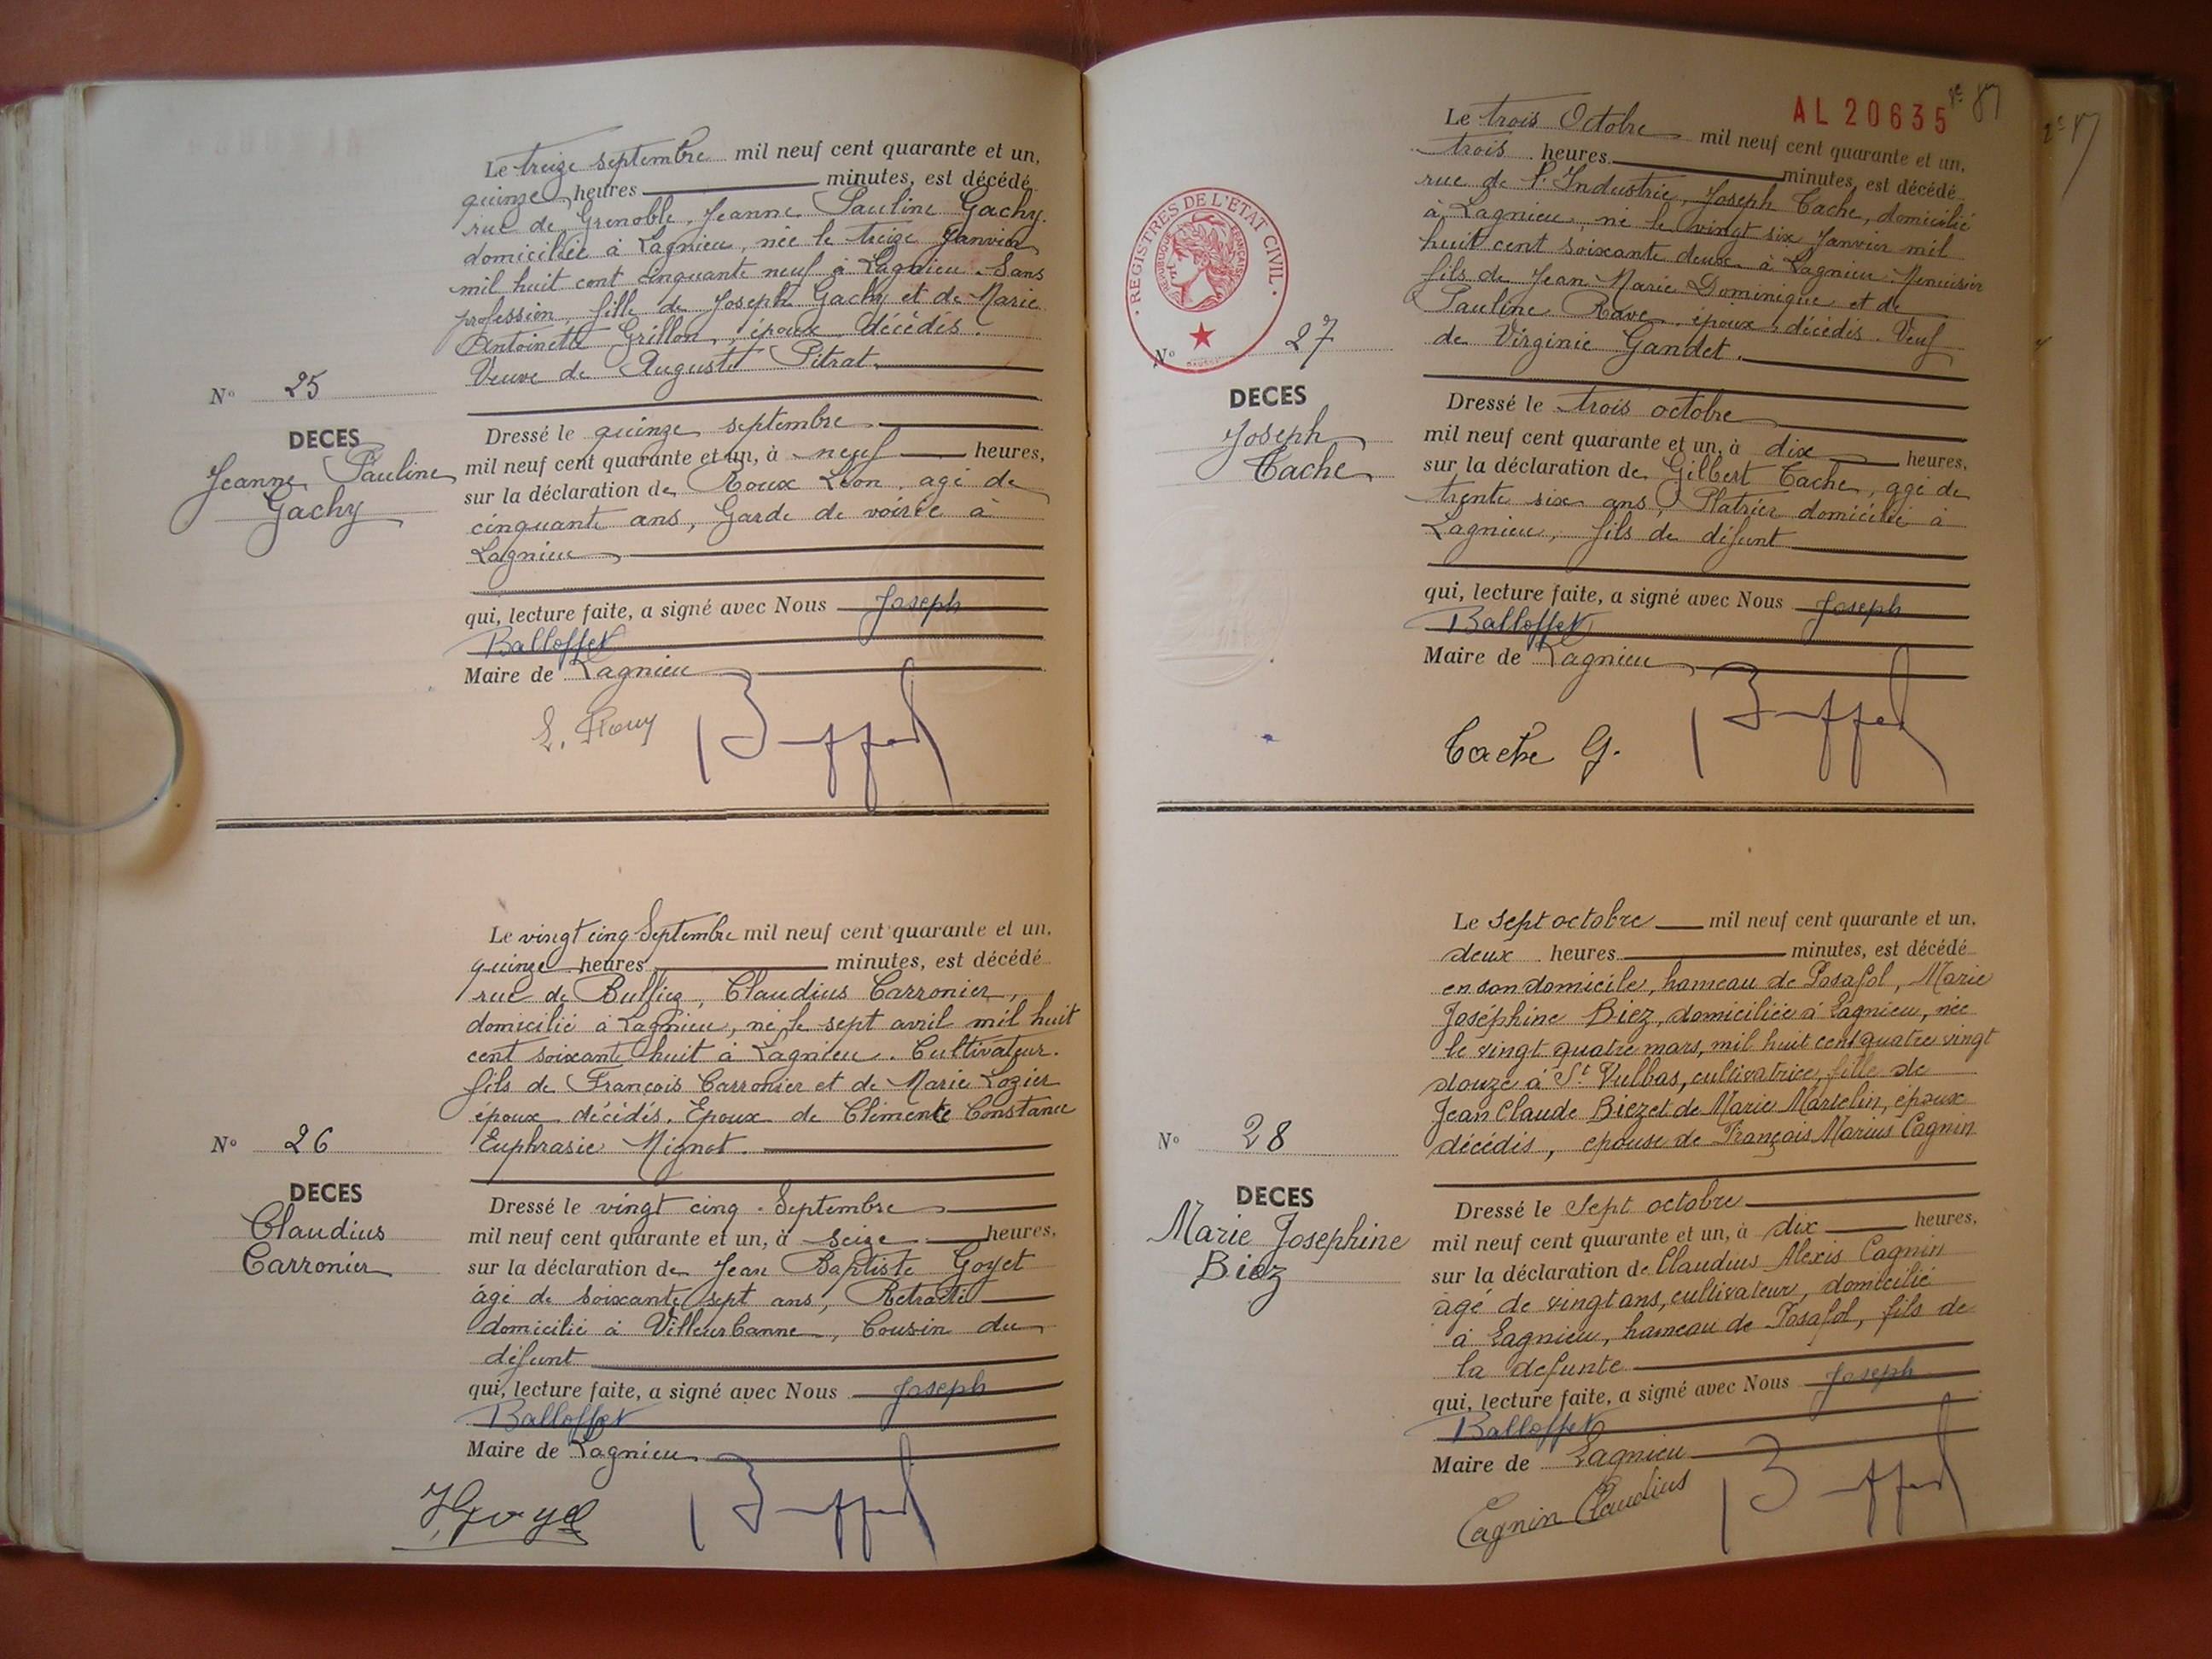 Le treize septembre mil neuf cent quarante et un,
quinze heures minutes, est décédé
rue de Grenoble, Jeanne Pauline Gachy.
domiciliée à Lagnieu, née le treize Janvier
mil huit cent cinquante neuf à Lagnieu. Sans
profession, fille de Joseph Gachy et de Marie
Antoinette Grillon, époux décédés.
Veuve de Auguste Pitrat.
N° 25
DECES
Jeanne Pauline
Gachy
Dressé le quinze septembre
mil neuf cent quarante et un, à neuf heures,
sur la déclaration de Roux Léon, agé de
cinquante ans, Garde de voirie à
Lagnieu
qui, lecture faite, a signé avec Nous Joseph
Balloffet
Maire de Lagnieu
L. Roux
Le vingt cinq Septembre mil neuf cent quarante et un.
quinze heures minutes, est décédé
rue de Bulliez, Claudius Carronier,
domicilié à Lagnieu, né le sept avril mil huit
cent soixante huit à Lagnieu. Cultivateur.
fils de François Carronier et de Marie Lozier
époux décédés. Epoux de Clémente Constance
Euphrasie Mignot.
N° 26
DECES
Claudius
Carronier
Dressé le vingt cinq Septembre
mil neuf cent quarante et un, à seize heures,
sur la déclaration de Jean Baptiste Goyet
âgé de soixante sept ans, Retraité
domicilié à Villeurbanne, Cousin du
défunt
qui, lecture faite, a signé avec Nous Joseph
Balloffet
Maire de Lagnieu
AL 20635
87
Le trois Octobre mil neuf cent quarante et un.
trois heures minutes, est décédé
rue de l'Industrie, Joseph Cache, domicilié
à Lagnieu, né le vingt six Janvier mil
huit cent soixante deux à Lagnieu. Menuisier
fils de Jean Marie Dominique et de
Pauline Rave, époux décédés. Veuf
de Virginie Gandet.
REGISTRES DE L'ETAT CIVIL
REPUBLIQUE FRANÇAISE
N° 27
DECES
Joseph
Cache
Dressé le trois octobre
mil neuf cent quarante et un, à dix heures,
sur la déclaration de Gilbert Cache, agé de
trente six ans, Platrier domicilié à
Lagnieu, fils de défunt
qui, lecture faite, a signé avec Nous Joseph
Balloffet
Maire de Lagnieu
Cache G.
Le sept octobre mil neuf cent quarante et un,
deux heures minutes, est décédé
en son domicile, hameau de Posafol, Marie
Joséphine Biez, domiciliée à Lagnieu, née
le vingt quatre mars, mil huit cent quatre vingt
douze à St Vulbas, cultivatrice, fille de
Jean Claude Biez et de Marie Martelin, époux
décédés, épouse de François Marius Cagnin
N° 28
DECES
Marie Josephine
Biez
Dressé le Sept octobre
mil neuf cent quarante et un, à dix heures,
sur la déclaration de Claudius Alexis Cagnin
agé de vingt ans, cultivateur, domicilié
à Lagnieu, hameau de Posafol, fils de
la defunte
qui, lecture faite, a signé avec Nous Joseph
Balloffet
Maire de Lagnieu
Cagnin Claudius